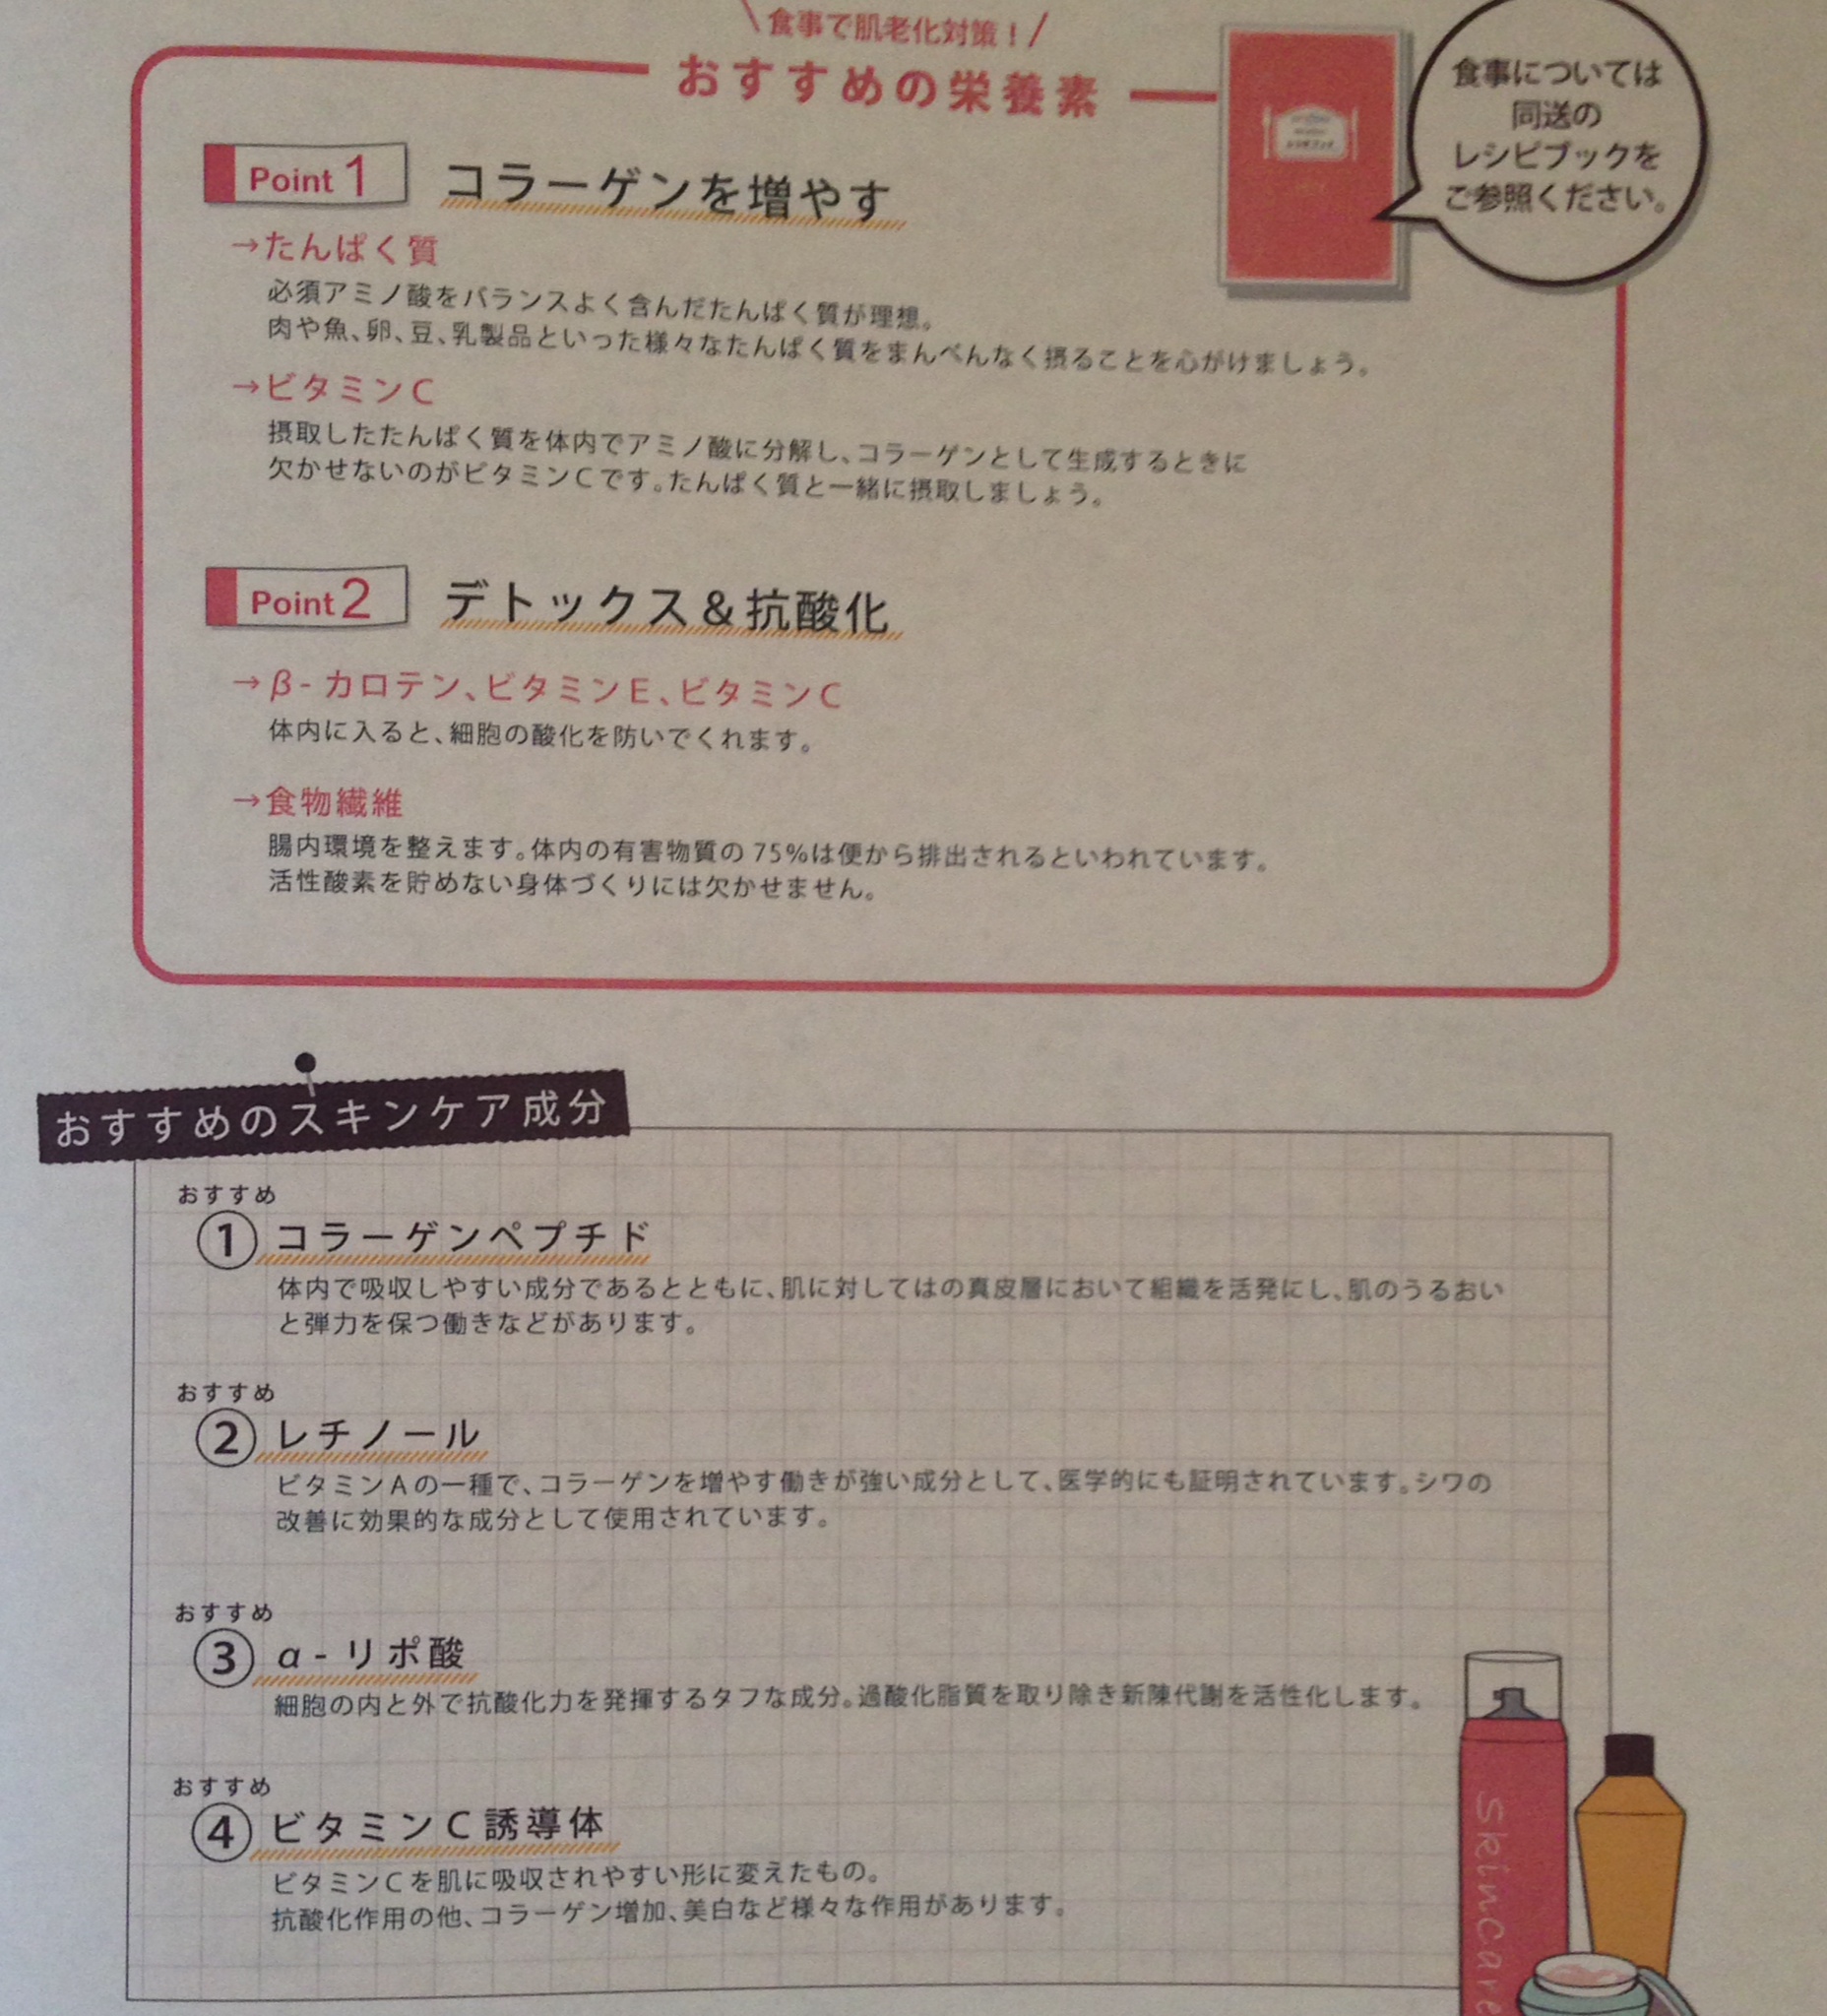 食事で肌老化対策!
おすすめの栄養素
食事については
同送の
レシピブックを
ご参照ください。
Point 1 コラーゲンを増やす
→たんぱく質
必須アミノ酸をバランスよく含んだたんぱく質が理想。
肉や魚、卵、豆、乳製品といった様々なたんぱく質をまんべんなく摂ることを心がけましょう。
→ビタミンC
摂取したたんぱく質を体内でアミノ酸に分解し、コラーゲンとして生成するときに
欠かせないのがビタミンCです。たんぱく質と一緒に摂取しましょう。
Point 2 デトックス&抗酸化
→β-カロテン、ビタミンE、ビタミンC
体内に入ると、細胞の酸化を防いでくれます。
→食物繊維
腸内環境を整えます。体内の有害物質の75%は便から排出されるといわれています。
活性酸素を貯めない身体づくりには欠かせません。
おすすめのスキンケア成分
おすすめ
① コラーゲンペプチド
体内で吸収しやすい成分であるとともに、肌に対してはの真皮層において組織を活発にし、肌のうるおい
と弾力を保つ働きなどがあります。
おすすめ
② レチノール
ビタミンAの一種で、コラーゲンを増やす働きが強い成分として、医学的にも証明されています。シワの
改善に効果的な成分として使用されています。
おすすめ
③ α-リポ酸
細胞の内と外で抗酸化力を発揮するタフな成分。過酸化脂質を取り除き新陳代謝を活性化します。
おすすめ
④ ビタミンC誘導体
ビタミンCを肌に吸収されやすい形に変えたもの。
抗酸化作用の他、コラーゲン増加、美白など様々な作用があります。
skincare